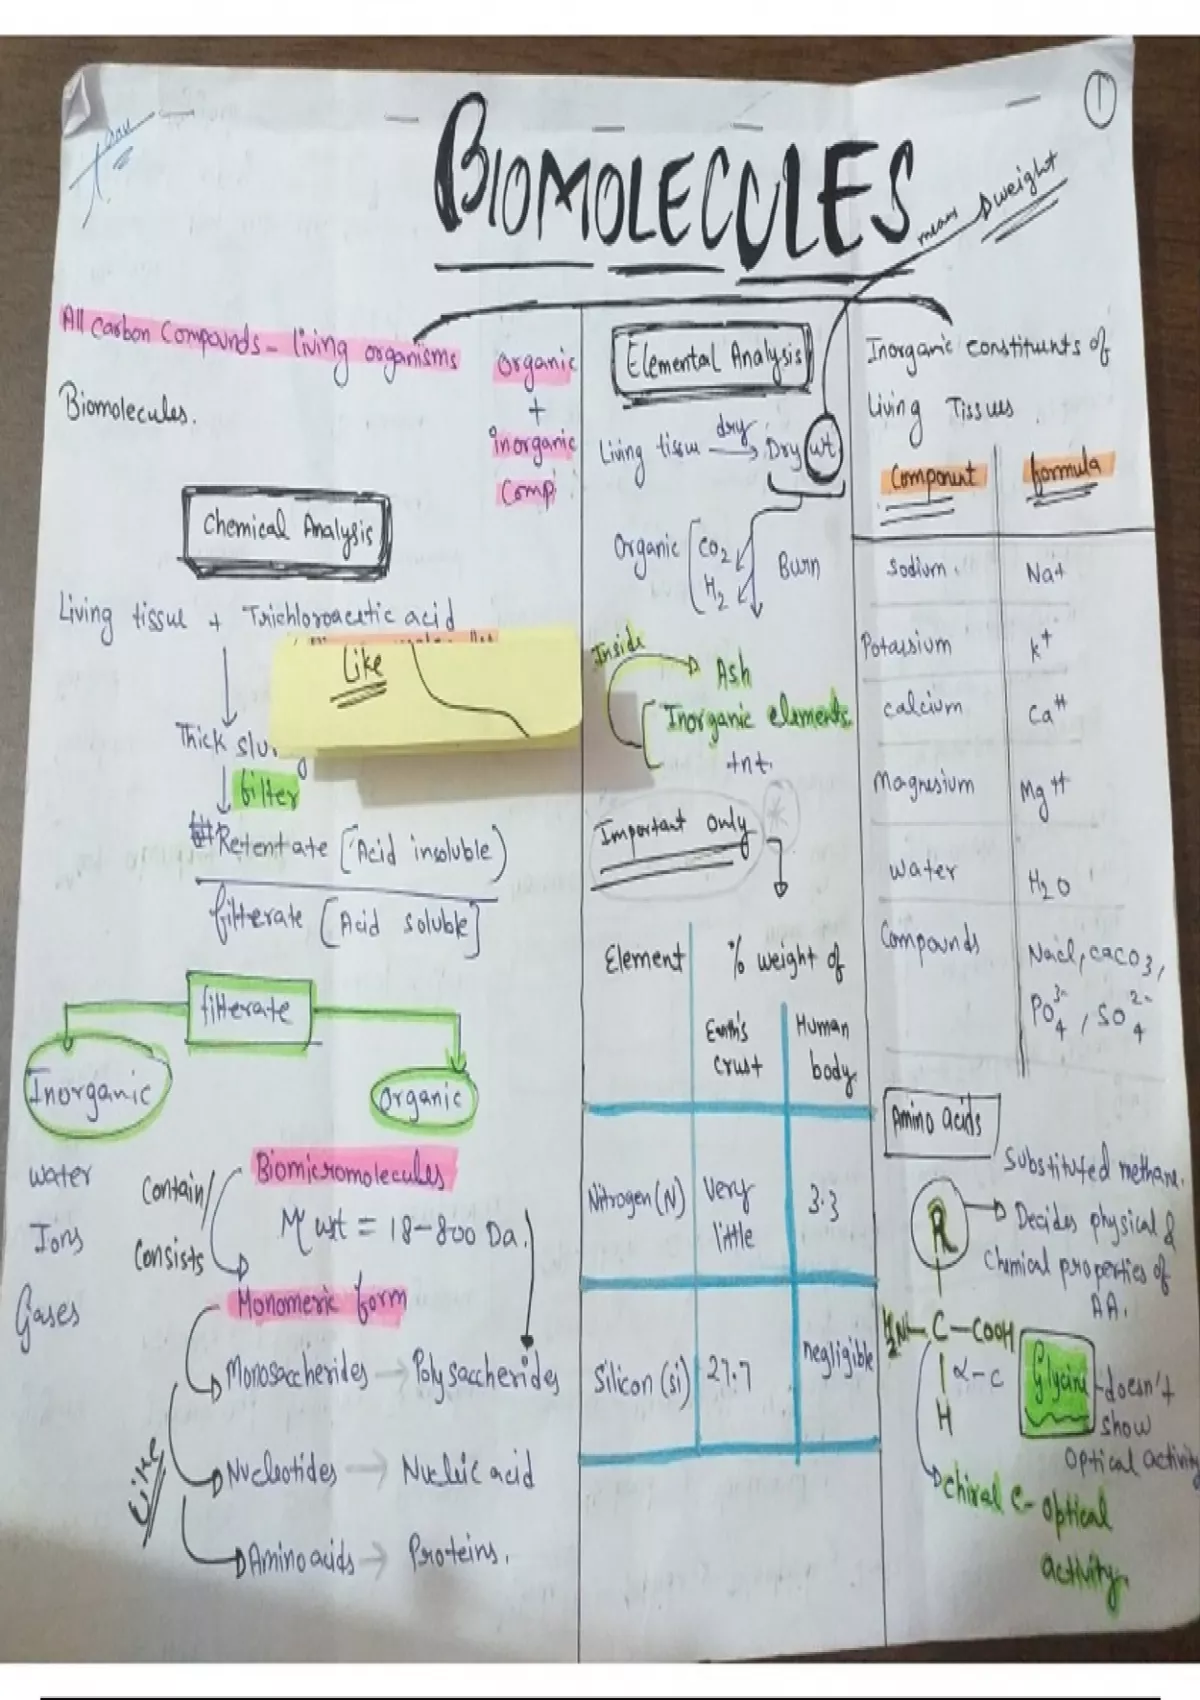 1
BIOMOLECULES
means weight
All Carbon Compounds - living organisms
Biomolecules.
Organic
+
inorganic
Comp
Chemical Analysis
Living tissue + Trichloroacetic acid
Like
Thick slu
filter
Retentate [Acid insoluble)
filterate [Acid soluble]
filterate
Inorganic
Organic
water
Ions
Gases
Contain/
Consists
Biomicromolecules
M wt = 18-800 Da.
Monomeric form
Monosaccherides → Polysaccherides
Nucleotides → Nucleic acid
Aminoacids → Proteins.
Like
Elemental Analysis
Living tissue dry → Dry wt
Organic [CO2
H2
Burn
Inside
Ash
Inorganic elements
+nt.
Important only
Element
% weight of
Earth's crust
Human body
Nitrogen (N) Very little 3.3
Silicon (si) 27.7 negligible
Inorganic constituents of
Living Tissues
Component formula
Sodium Na+
Potassium K+
calcium Ca++
Magnesium Mg++
water H2O
Compounds Nacl, caco3,
PO4 3-, SO4 2-
Amino acids
Substituted methane.
R → Decides physical &
Chemical properties of
AA.
H2N-C-COOH
α-C
H
Glycine - doesn't
show
optical activity
chiral C- optical
activity.